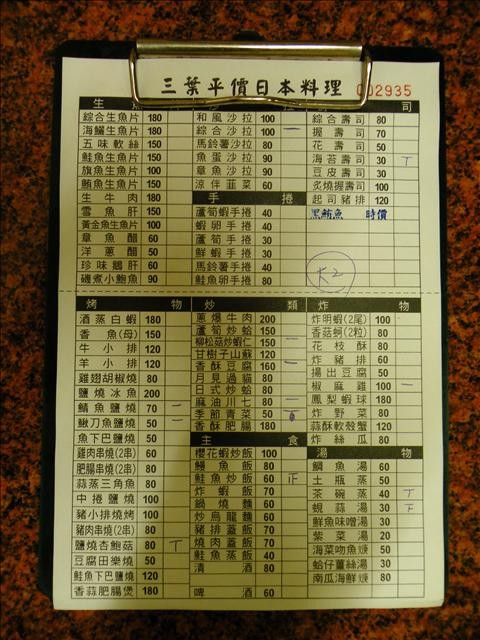 三葉平價日本料理 002935
生
綜合生魚片 180
海鱺生魚片 180
五味軟絲 150
鮭魚生魚片 150
旗魚生魚片 100
鮪魚生魚片 150
生牛肉 180
雪魚肝 150
黃金魚生魚片 100
章魚醋 60
洋蔥醋 50
珍味鵝肝 60
磯煮小鮑魚 90
和風沙拉 100
綜合沙拉 100 一
馬鈴薯沙拉 80
魚蛋沙拉 90
章魚沙拉 90
涼伴韮菜 60
手捲
蘆筍蝦手捲 40
蝦卵手捲 40
蘆筍手捲 30
鮮蝦手捲 30
馬鈴薯手捲 40
鮭魚卵手捲 80
司
綜合壽司 80
握壽司 70
花壽司 50
海苔壽司 30 丅
豆皮壽司 30
炙燒握壽司 100
起司豬排 120
黑鮪魚 時價
K2
烤物
酒蒸白蝦 180
香魚(母) 150
牛小排 120
羊小排 120
雞翅胡椒燒 80
鹽燒冰魚 200
鯖魚鹽燒 70 一
鰍刀魚鹽燒 50 一
魚下巴鹽燒 50
雞肉串燒(2串) 60
肥腸串燒(2串) 80
蒜蒸三角魚 80
中捲鹽燒 100
豬小排燒烤 100
豬肉串燒(2串) 80
鹽燒杏鮑菇 80 丅
豆腐田樂燒 50
鮭魚下巴鹽燒 120
香蒜肥腸煲 180
炒類
蔥爆牛肉 200
蘆筍炒蛤 150
柳松菇炒蝦仁 150 一
甘樹子山蘇 120
香酥豆腐 160 一
月見過貓 80
日式炒蛤 80
麻油川七 80 一
季節青菜 50
香酥肥腸 180
主食
櫻花蝦炒飯 100
鰻魚飯 80
鮭魚炒飯 60 正
炸蝦飯 70
鍋燒麵 60
炒烏龍麵 60
豬排蓋飯 70
燒肉蓋飯 70
鮭魚蒸飯 40
清酒 80
啤酒 60
炸物
炸明蝦(2尾) 100
香菇蚵(2粒) 80
花枝酥 80
炸豬排 60
揚出豆腐 50
椒麻雞 100 一
鳳梨蝦球 180
炸野菜 80
蒜酥軟殼蟹 120
炸絲瓜 80
湯物
鯛魚湯 60
土瓶蒸 50
茶碗蒸 40 丅
蜆蒜湯 30 下
鮮魚味噌湯 30
紫菜湯 20
海菜吻魚羹 50
蛤仔薑絲湯 30
南瓜海鮮羹 80